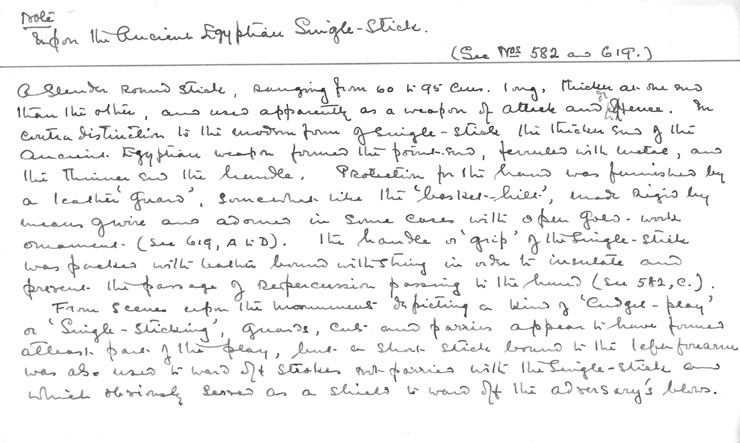 Note
Upon the Ancient Egyptian Single-Stick.
(See Nos 582 and 619.)
A slender round stick, ranging from 60 to 95 cms. long, thicker at one end
than the other, and used apparently as a weapon of attack and defence. In
contra distinction to the modern form of single-stick the thicker end of the
Ancient Egyptian weapon formed the point-end, ferruled with metal, and
the thinner end the handle. Protection for the hand was furnished by
a leather 'guard', somewhat like the 'basket-hilt', made rigid by
means of wire and adorned in some cases with open gold-work
ornament (see 619, A to D). The handle or 'grip' of the single-stick
was packed with leather bound with string in order to insulate and
prevent the passage of repercussion passing to the hand (see 582, C.).
From scenes upon the monuments depicting a kind of 'Cudgel-play'
or 'Single-sticking', guards, cuts and parries appear to have formed
atleast part of the play, but a short stick bound to the left forearm
was also used to ward off strokes not parried with the single-stick and
which obviously served as a shield to ward off the adversary's blows.